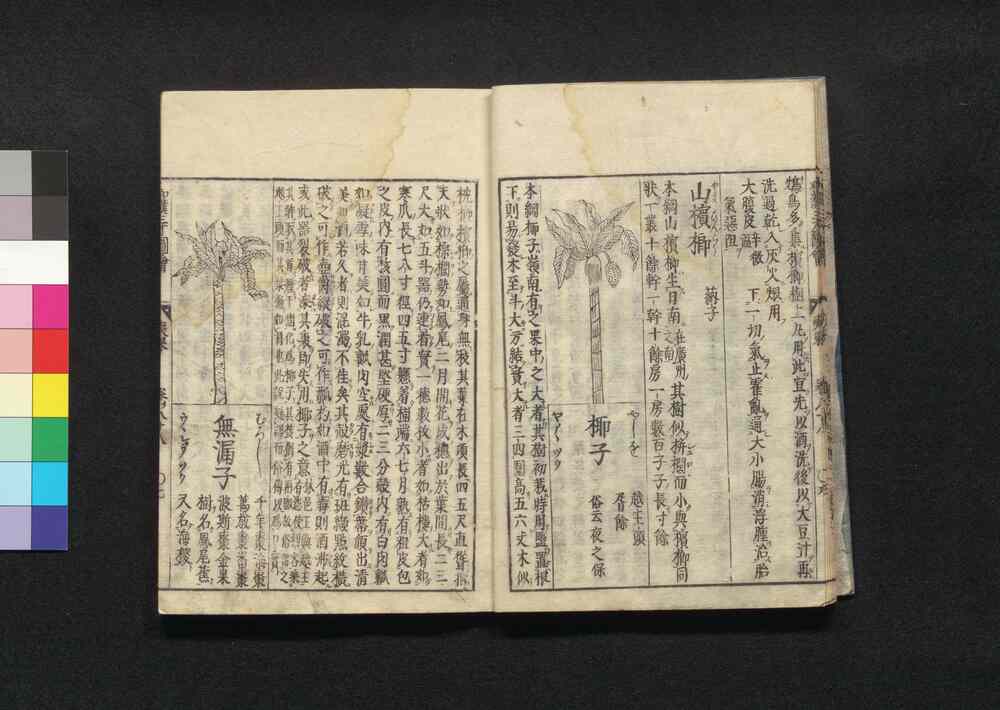 鴆鳥多集檳榔樹上凡用此宜先以酒洗後以大豆汁再
洗過乾入灰火煨用
大腹皮 辛微溫 下一切氣止霍亂通大小腸消浮腫治胎
氣惡阻
山檳榔 蒳子
本綱山檳榔生日南之南在廣州其樹似栟櫚而小與檳榔同
狀一叢十餘幹一幹十餘房一房數百子子長寸餘
やしを
椰子
ヤヽツウ
越王頭
胥餘
俗云夜之保
本綱椰子嶺南有之果中之大者其樹初栽時用鹽置根
下則易發木至斗大方結實大者三四圍高五六丈木似
桄榔檳榔之屬通身無枝其葉在木頂長四五尺直聳指
天狀如棕櫚勢如鳳尾二月開花成穗出於葉間長二三
尺大如五斗器仍連着實一穗數枚小者如栝樓大者如
寒瓜長七八寸徑四五寸懸着樹端六七月熟有粗皮包
之皮內有核圓而黑潤甚堅硬厚二三分殼內有白肉瓤
如凝雪味甘美如牛乳瓤肉空處有漿數合鑽蒂傾出清
美如酒若久者則混濁不佳矣其殼磨光有斑纈點紋橫
破之可作壺爵縱破之可作瓢杓如酒中有毒則酒沸起
或此器裂破
無漏子
ウヽロウツウ
千年棗 海棗
萬歲棗 番棗
波斯棗 金果
樹名鳳尾蕉
又名海椶